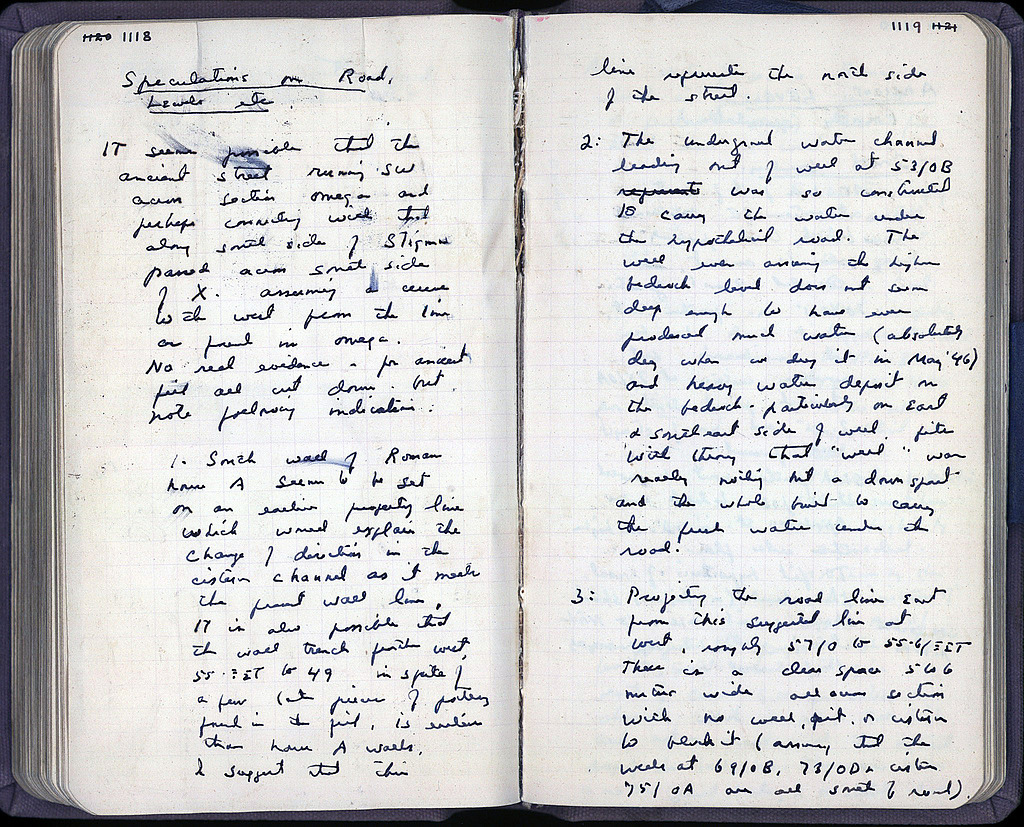 1120 1118
Speculations on Road,
Levels etc.
IT seems possible that the
ancient street running SW
across section omega and
perhaps connecting with that
along south side of STigma
passed across south side
of X. assuming a curve
to the west from the line
as found in omega.
No real evidence - for ancient
fill all cut down. But
note following indications:
1. South wall of Roman
house A seems to be set
on an earlier property line
which would explain the
change of direction in the
cistern channel as it meets
the present wall line.
IT is also possible that
the wall trench further west,
55 to 49 in spite of
a few late pieces of pottery
found in the fill, is earlier
than house A walls.
I suggest that this
1119 1121
line represents the north side
of the street.
2: The underground water channel
leading out of well at 53/OB
represents was so constructed
to carry the water under
the hypothetical road. The
well even assuming the higher
bedrock level does not seem
deep enough to have ever
produced much water (absolutely
dry when we dug it in May '46)
and heavy water deposit on
the bedrock - particularly on East
& southeast side of well fits
with theory that "well" was
really nothing but a downspout
and the whole built to carry
the fresh water under the
road.
3: Projecting the road line East
from this suggested line at
west, roughly 57/O to 55-6/
There is a clear space 5 to 6
meters wide all across section
with no well, pit, or cistern
to block it (assuming that the
wells at 69/OB, 73/OD & cistern
75/OA are all south of road).